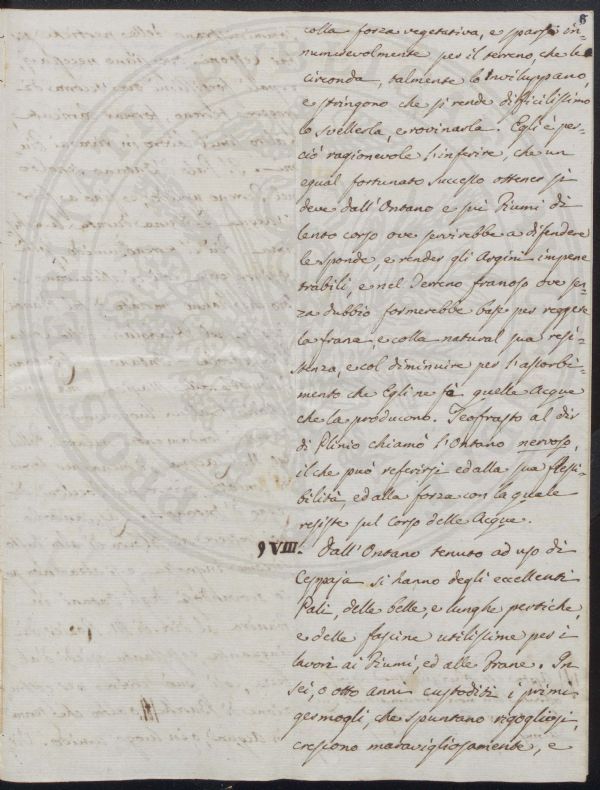 6
colla forza vegetativa, e sparsi in=
numerevolmente per il terreno, che le
circonda, talmente lo inviluppano,
e stringono che si rende difficilissimo
lo svellerla, e rovinarla. Egli è per=
ciò ragionevole l'inferire, che un
egual fortunato successo ottener si
deve dall'Ontano e sui Fiumi di
lento corso ove servirebbe a difendere
le sponde, e render gli Argini impene
trabili, e nel Terreno franoso ove sen=
za dubbio formerebbe base per reggere
la frana, e colla natural sua resi=
stenza, e col diminuire per l'assorbi=
mento che Egli ne fà quelle Acque
che la producono. Teofrasto al dir
di Plinio chiamò l'Ontano nervoso,
il che può referirsi ed alla sua flessi=
bilità, ed alla forza con la quale
resiste sul Corso delle Acque.
§ VIII. Dall'Ontano tenuto ad uso di
Ceppaja si hanno degli eccellenti
Pali, delle belle, e lunghe pertiche,
e delle fascine utilissime per i
lavori ai Fiumi, ed alle Frane. In
sei, o otto anni custoditi i primi
germogli, che spuntano rigogliosi,
crescono maravigliosamente, e